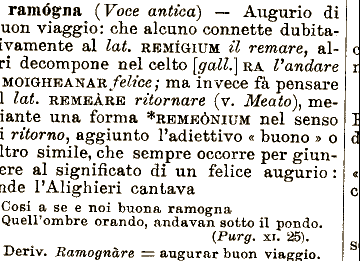 ramógna (Voce antica) — Augurio di
uon viaggio: che alcuno connette dubita-
ivamente al lat. REMÍGIUM il remare, al-
ri decompone nel celto [gall.] RA l'andare
MOIGHEANAR felice; ma invece fà pensare
l lat. REMEÀRE ritornare (v. Meato), me-
iante una forma *REMEÒNIUM nel senso
i ritorno, aggiunto l'adiettivo « buono » o
ltro simile, che sempre occorre per giun-
ere al significato di un felice augurio:
nde l'Alighieri cantava
Cosí a se e noi buona ramogna
Quell'ombre orando, andavan sotto il pondo.
(Purg. XI. 25).
Deriv. Ramognàre = augurar buon viaggio.